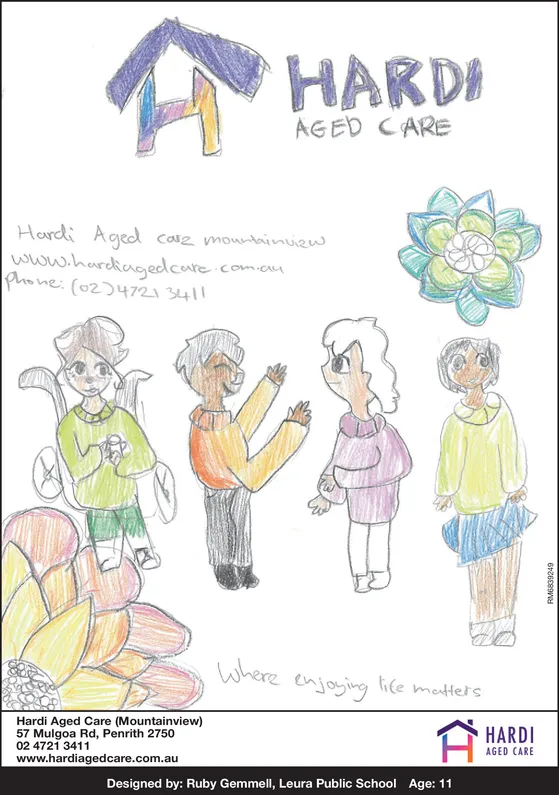 HARDI
AGED CARE
Hardi Aged care mountainview
www.hardiagedcare.com.au
Phone: (02) 4721 3411
Where enjoying life matters
RM6839249
Hardi Aged Care (Mountainview)
57 Mulgoa Rd, Penrith 2750
02 4721 3411
www.hardiagedcare.com.au
HARDI
AGED CARE
Designed by: Ruby Gemmell, Leura Public School Age: 11